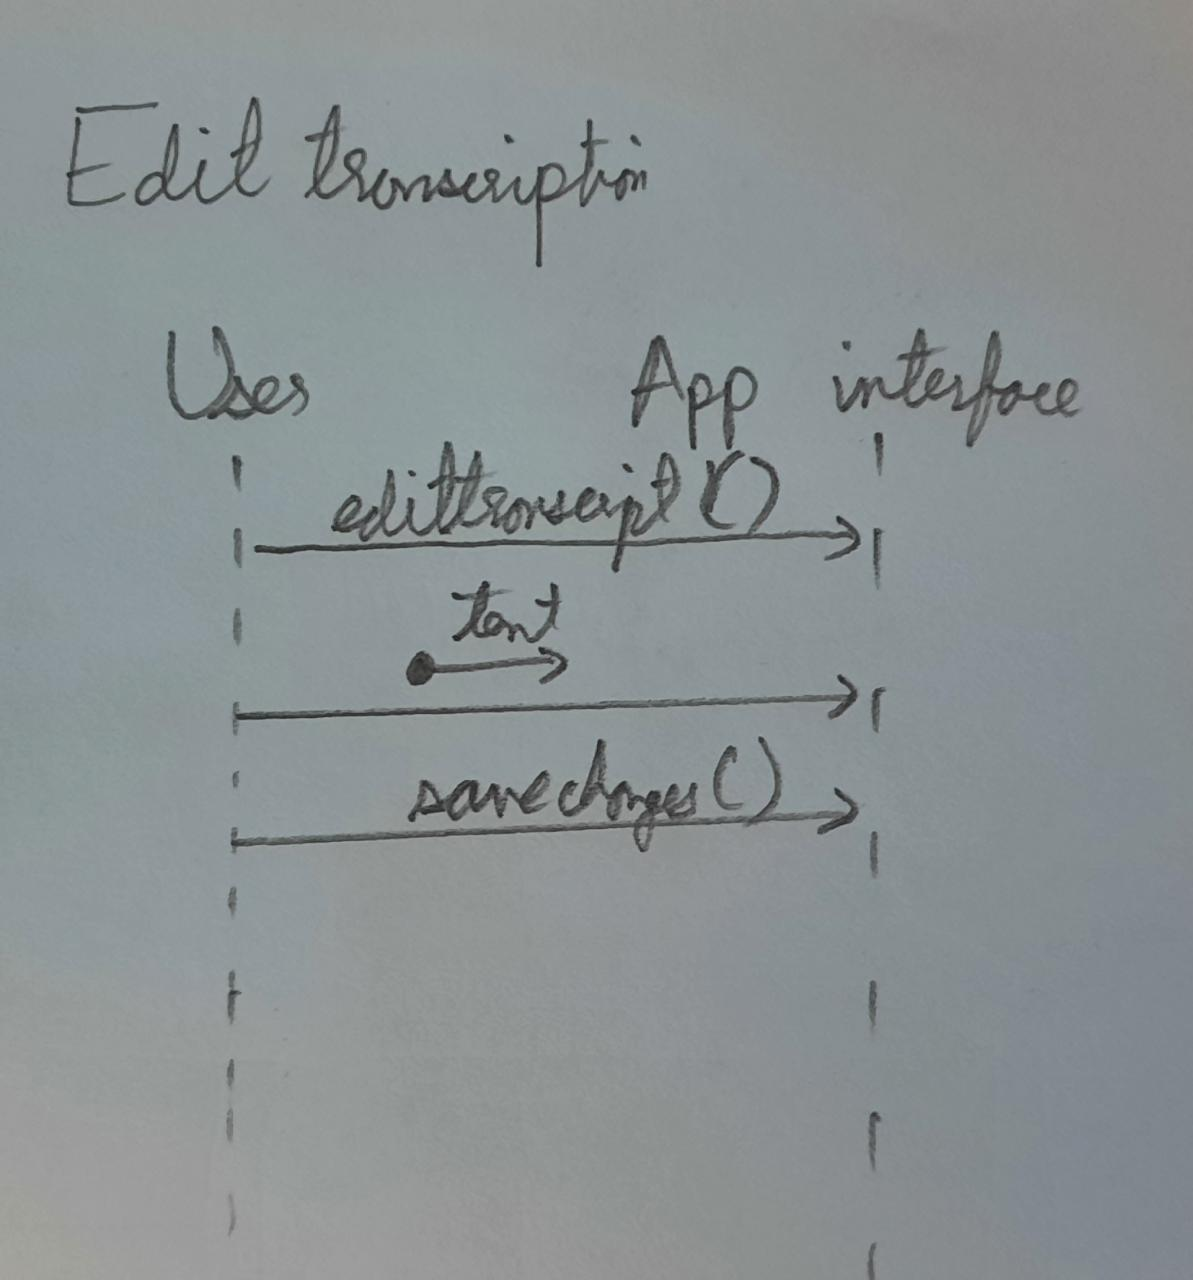 Edit transcription
User App interface
edittranscript ()
text
savechanges ()